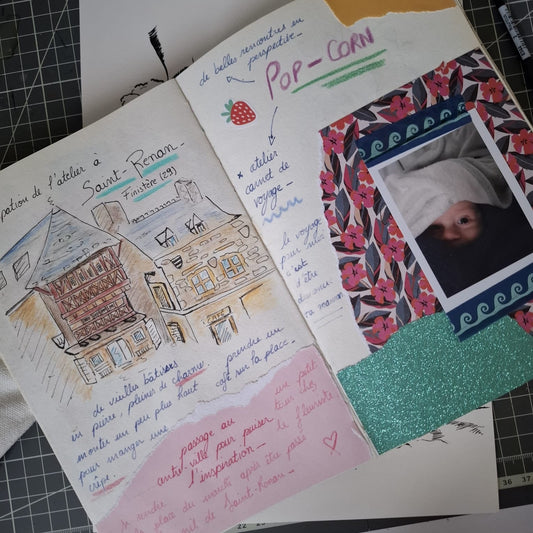 pation de l'atelier à
Saint-Renan-
Finistère (29)
CAFE
de vieilles bâtisses
en pierre, pleines de charme. prendre un
monter un peu plus haut café sur la place-
pour manger une
crêpe.
passage au un petit
ville pour puiser tour chez
l'inspiration- le fleuriste
se rendre
la place du marché après être passé
de Saint-Renan-
de belles rencontres en
perspective-
POP-CORN
* atelier
carnet de
voyage-
le voyage
pour
c'est
d'être
maman
22
36 37